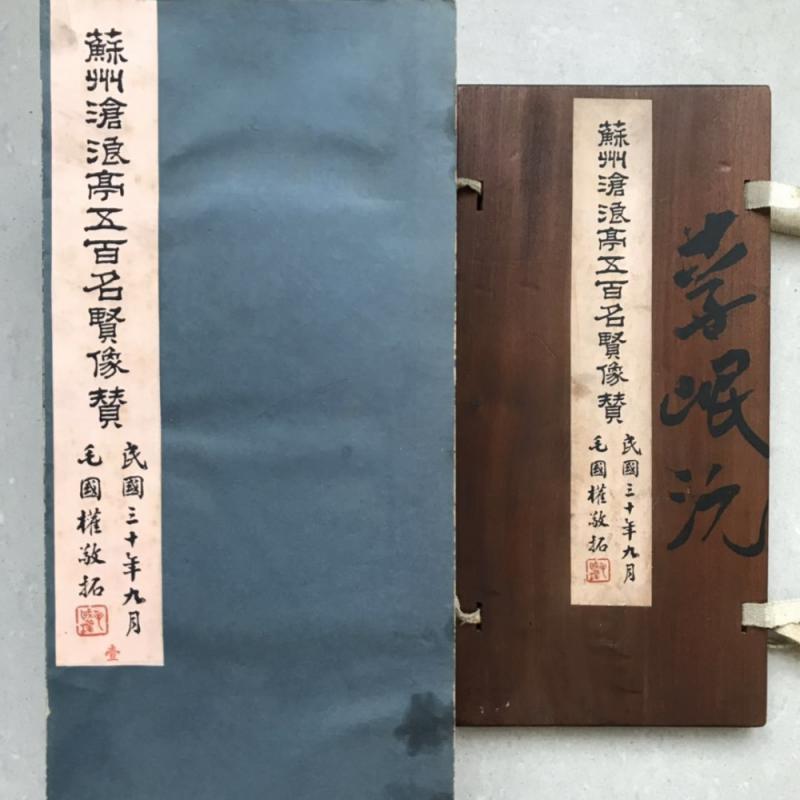 蘇州滄浪亭五百名賢像贊
民國三十年九月
毛國權敬拓
壹
蘇州滄浪亭五百名賢像贊
民國三十年九月
毛國權敬拓